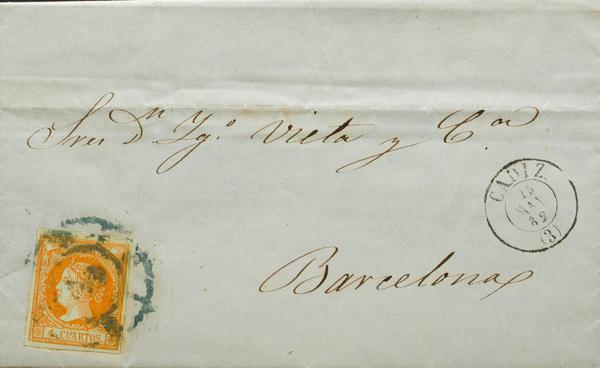 Sres Dn Igo Vieta y Ca
CADIZ
15
62
(3)
Barcelona
4 CUARTOS